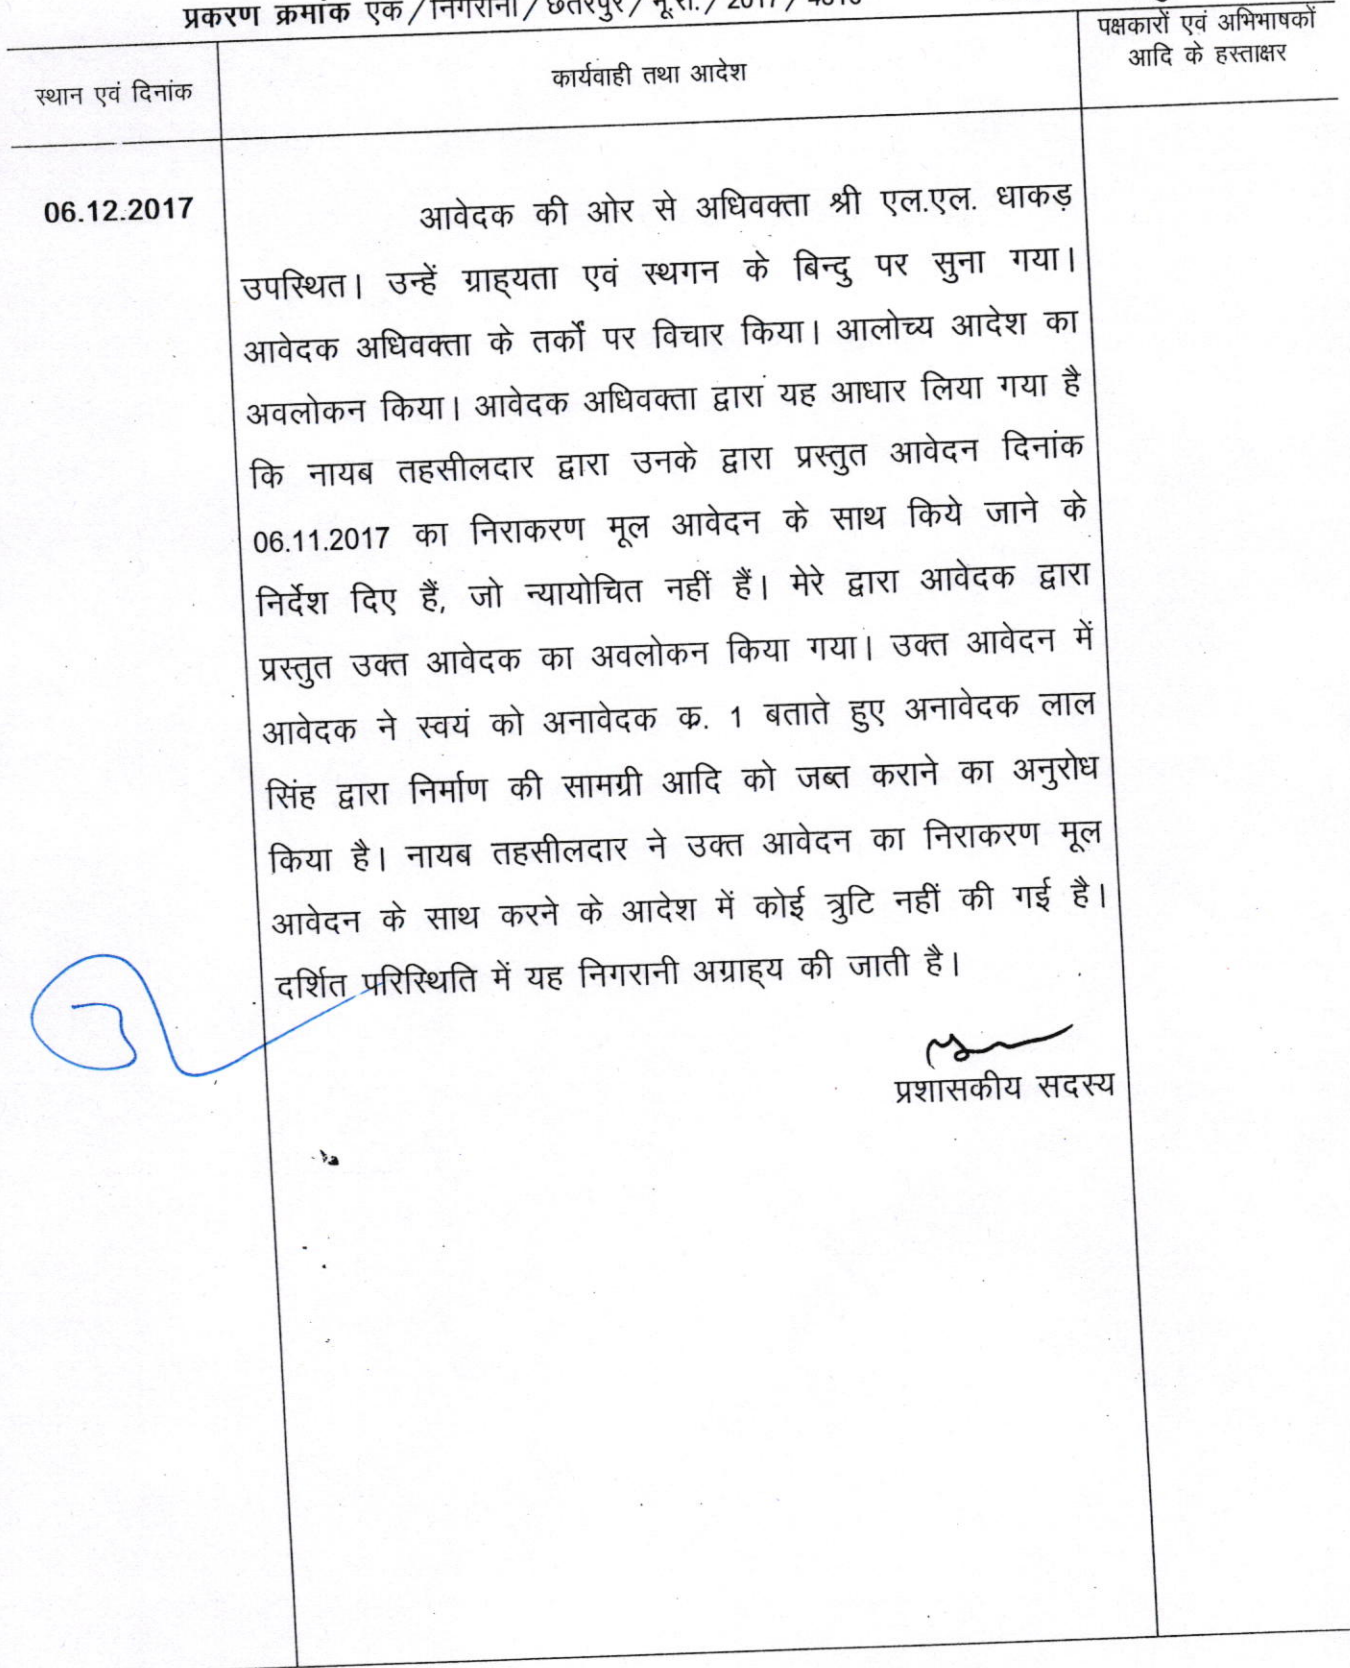 प्रकरण क्रमांक एक/निगरानी/छतरपुर/भू.रा./2017/
स्थान एवं दिनांक
कार्यवाही तथा आदेश
पक्षकारों एवं अभिभाषकों
आदि के हस्ताक्षर
06.12.2017
आवेदक की ओर से अधिवक्ता श्री एल.एल. धाकड़
उपस्थित। उन्हें ग्राह्यता एवं स्थगन के बिन्दु पर सुना गया।
आवेदक अधिवक्ता के तर्कों पर विचार किया। आलोच्य आदेश का
अवलोकन किया। आवेदक अधिवक्ता द्वारा यह आधार लिया गया है
कि नायब तहसीलदार द्वारा उनके द्वारा प्रस्तुत आवेदन दिनांक
06.11.2017 का निराकरण मूल आवेदन के साथ किये जाने के
निर्देश दिए हैं, जो न्यायोचित नहीं हैं। मेरे द्वारा आवेदक द्वारा
प्रस्तुत उक्त आवेदक का अवलोकन किया गया। उक्त आवेदन में
आवेदक ने स्वयं को अनावेदक क्र. 1 बताते हुए अनावेदक लाल
सिंह द्वारा निर्माण की सामग्री आदि को जब्त कराने का अनुरोध
किया है। नायब तहसीलदार ने उक्त आवेदन का निराकरण मूल
आवेदन के साथ करने के आदेश में कोई त्रुटि नहीं की गई है।
दर्शित परिस्थिति में यह निगरानी अग्राह्य की जाती है।
प्रशासकीय सदस्य